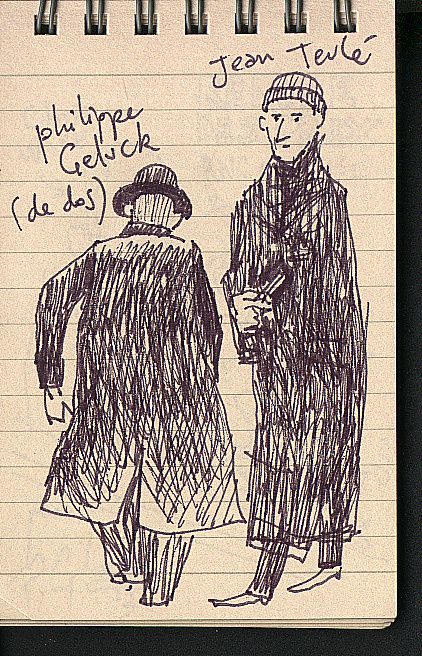 Jean Teulé
philippe
Geluck
(de dos)